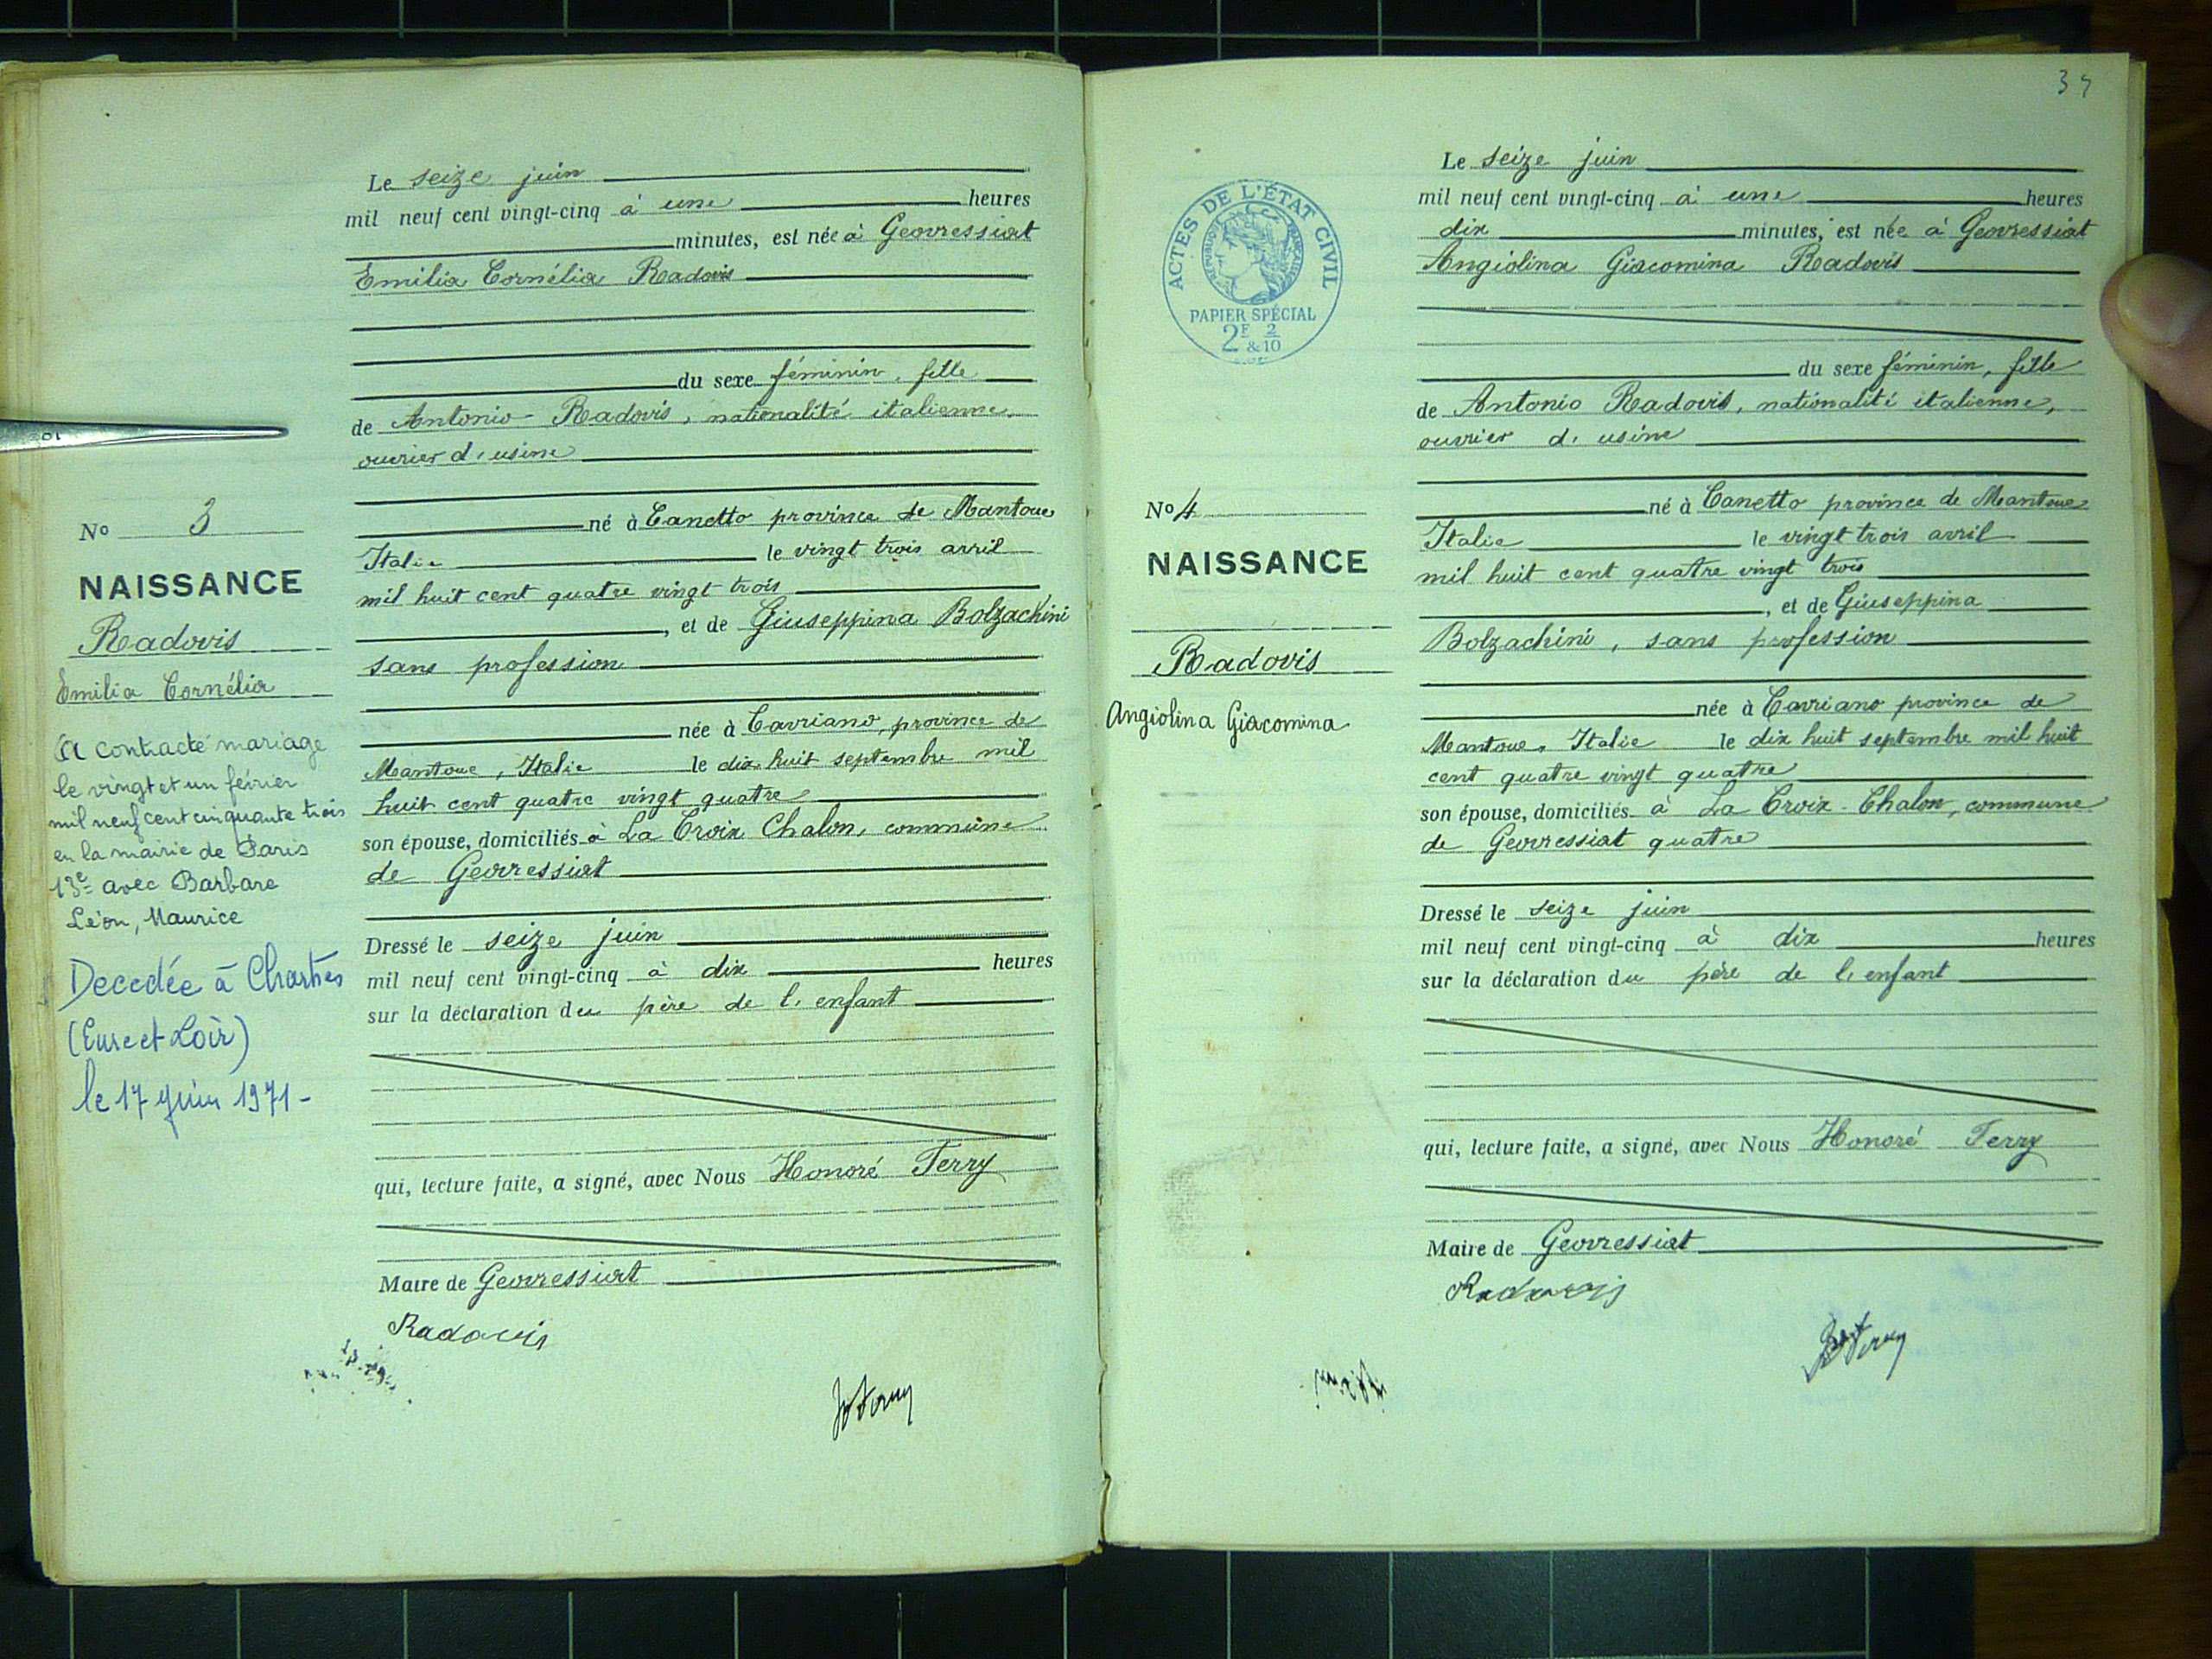 Le seize juin
mil neuf cent vingt-cinq à une heures
minutes, est née à Geovressiat
Emilia Cornélia Radovis
du sexe féminin, fille
de Antonio Radovis, nationalité italienne,
ouvrier d'usine
né à Canetto province de Mantoue
Italie le vingt trois avril
mil huit cent quatre vingt trois
, et de Giuseppina Bolzachini
sans profession
née à Cavriano, province de
Mantoue, Italie le dix huit septembre mil
huit cent quatre vingt quatre
son épouse, domiciliés à La Croix Chalon, commune
de Geovressiat
Dressé le seize juin
mil neuf cent vingt-cinq à dix heures
sur la déclaration du père de l'enfant
qui, lecture faite, a signé, avec Nous Honoré Ferry
Maire de Geovressiat
Radovis
No 3
NAISSANCE
Radovis
Emilia Cornélia
A contracté mariage
le vingt et un février
mil neuf cent cinquante trois
en la mairie de Paris
13e avec Barbare
Léon, Maurice
Decedée à Chartres
(Eure et Loir)
le 17 juin 1971-
Le seize juin
mil neuf cent vingt-cinq à une heures
dix minutes, est née à Geovressiat
Angiolina Giacomina Radovis
du sexe féminin, fille
de Antonio Radovis, nationalité italienne,
ouvrier d'usine
né à Canetto province de Mantoue
Italie le vingt trois avril
mil huit cent quatre vingt trois
, et de Giuseppina
Bolzachini, sans profession
née à Cavriano province de
Mantoue, Italie le dix huit septembre mil huit
cent quatre vingt quatre
son épouse, domiciliés à La Croix-Chalon, commune
de Geovressiat quatre
Dressé le seize juin
mil neuf cent vingt-cinq à dix heures
sur la déclaration du père de l'enfant
qui, lecture faite, a signé, avec Nous Honoré Ferry
Maire de Geovressiat
Radovis
ACTES DE L'ÉTAT CIVIL
RÉPUBLIQUE FRANÇAISE
PAPIER SPÉCIAL
2F & 2/10
No 4
NAISSANCE
Radovis
Angiolina Giacomina